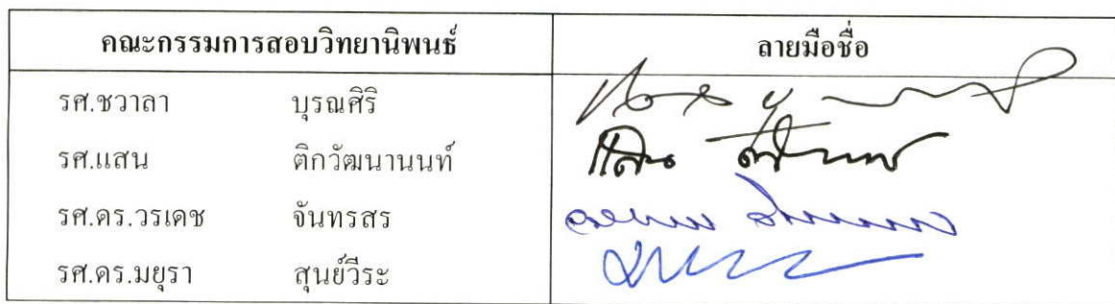 คณะกรรมการสอบวิทยานิพนธ์ ลายมือชื่อ
รศ.ชวาลา บุรณศิริ
รศ.แสน ติกวัฒนานนท์
รศ.ดร.วรเดช จันทรสร
รศ.ดร.มยุรา สุนย์วีระ